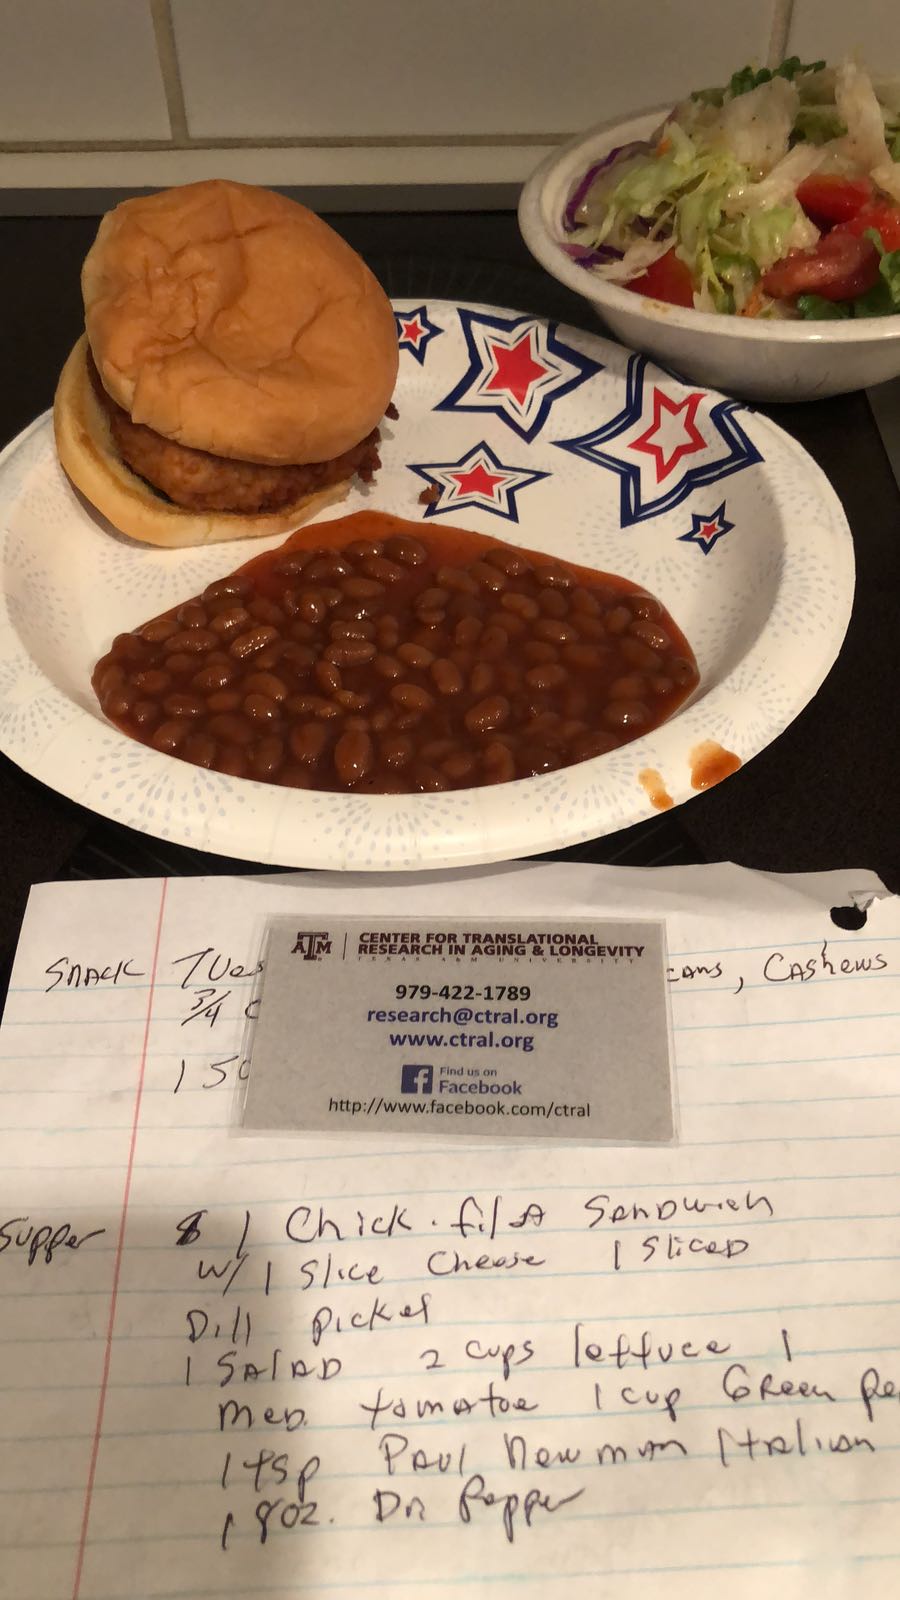 SNACK Tues
CASHEWS
3/4 C
1 50
ATM | CENTER FOR TRANSLATIONAL
RESEARCH IN AGING & LONGEVITY
TEXAS A&M UNIVERSITY
979-422-1789
research@ctral.org
www.ctral.org
f Find us on
Facebook
http://www.facebook.com/ctral
Supper 1 Chick-fil A Sandwich
w/ 1 Slice Cheese 1 Sliced
Dill pickel
1 SALAD 2 cups lettuce 1
med. tomatoe 1 cup Green pe
1 tsp PAUL Newman Italian
1 8oz. Dr Pepper